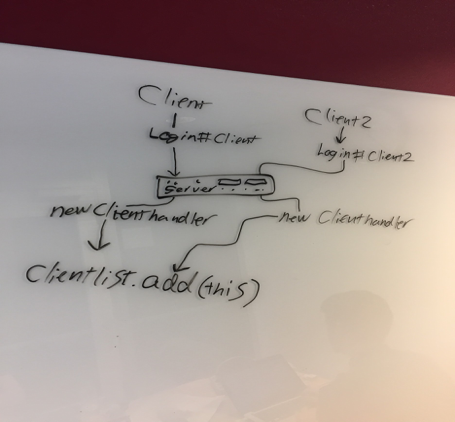 Client
Client2
Login#Client
Login#Client2
Server
new Clienthandler
new Clienthandler
Clientlist.add(this)